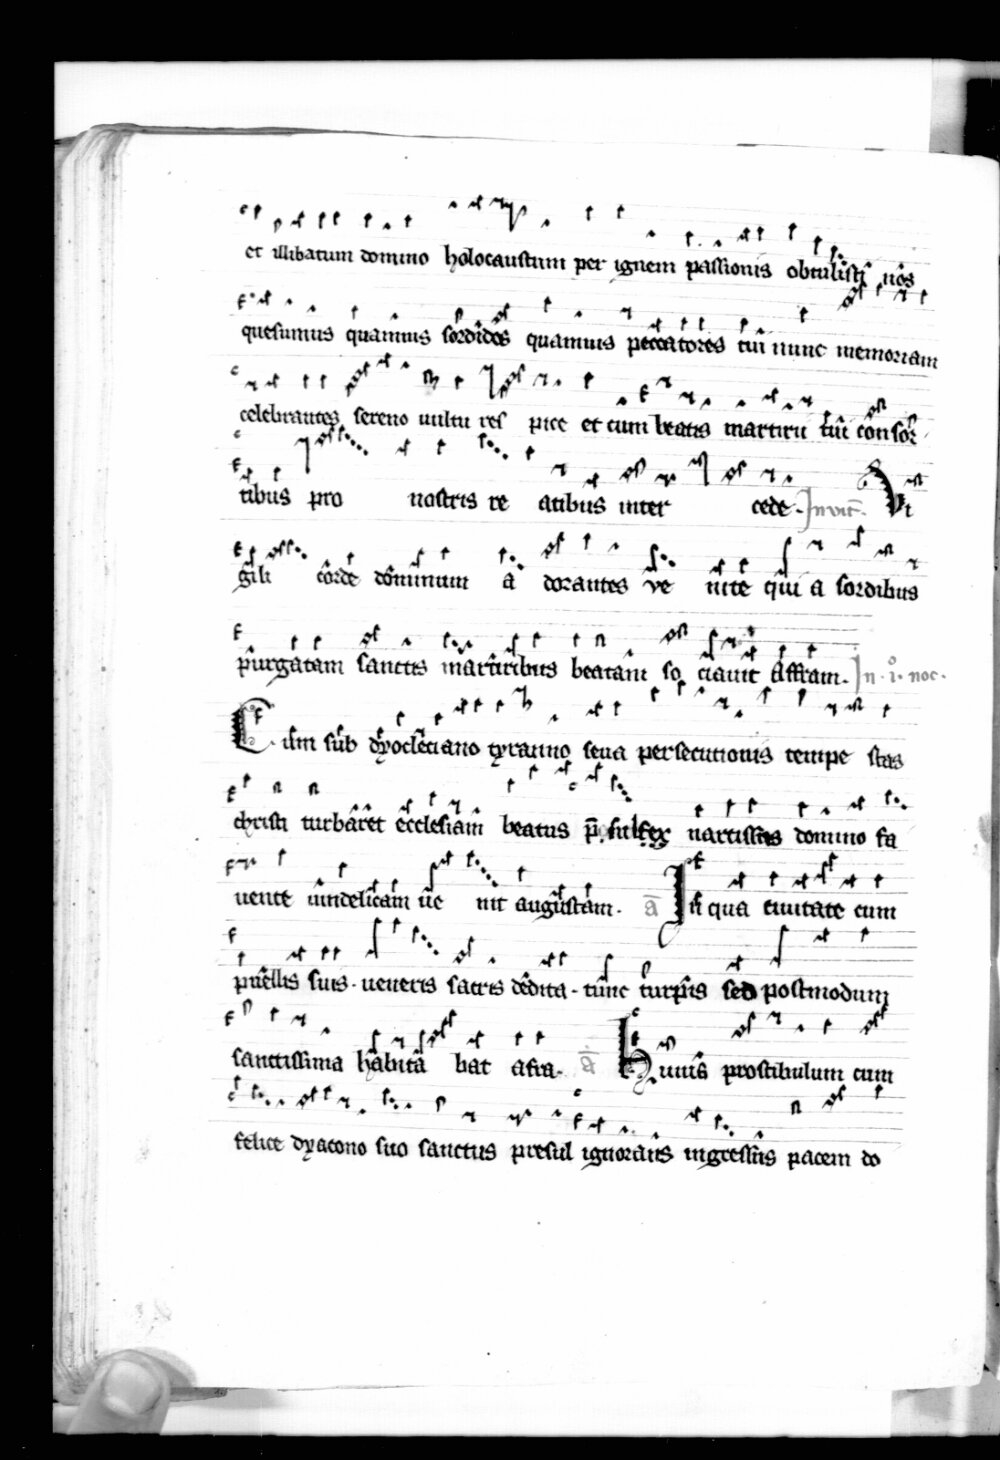 et illibatum domino holocaustum per ignem passionis obtulisti nos
quesumus quamuis sordidos quamuis peccatores tui nunc memoriam
celebrantes sereno uultu res pice et cum beatis martirū tui consor
tibus pro nostris re atibus inter cede. Invit. Vi
gili corde dominum a dorantes ve nite qui a sordibus
purgatam sanctis martiribus beatam so ciauit Affram. In .i. noc.
Cum sub dyocleciano tyranno seua persecutionis tempe stas
christi turbaret ecclesiam beatus narcissus domino fa
uente uindelicam ue nit augustam. a In qua ciuitate cum
puellis suis. ueneris sacris dedita. tunc turpis sed postmodum
sanctissima habita bat afra. a Huius prostibulum cum
felice dyacono suo sanctus presul ignorans ingressus pacem do